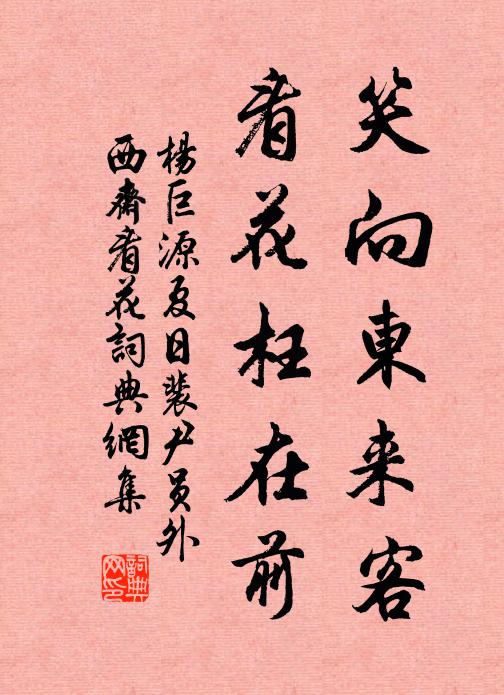 笑向東来客
看花枉在前
楊巨源夏日裴尹員外
西齋看花詞典網集
詞典
网印